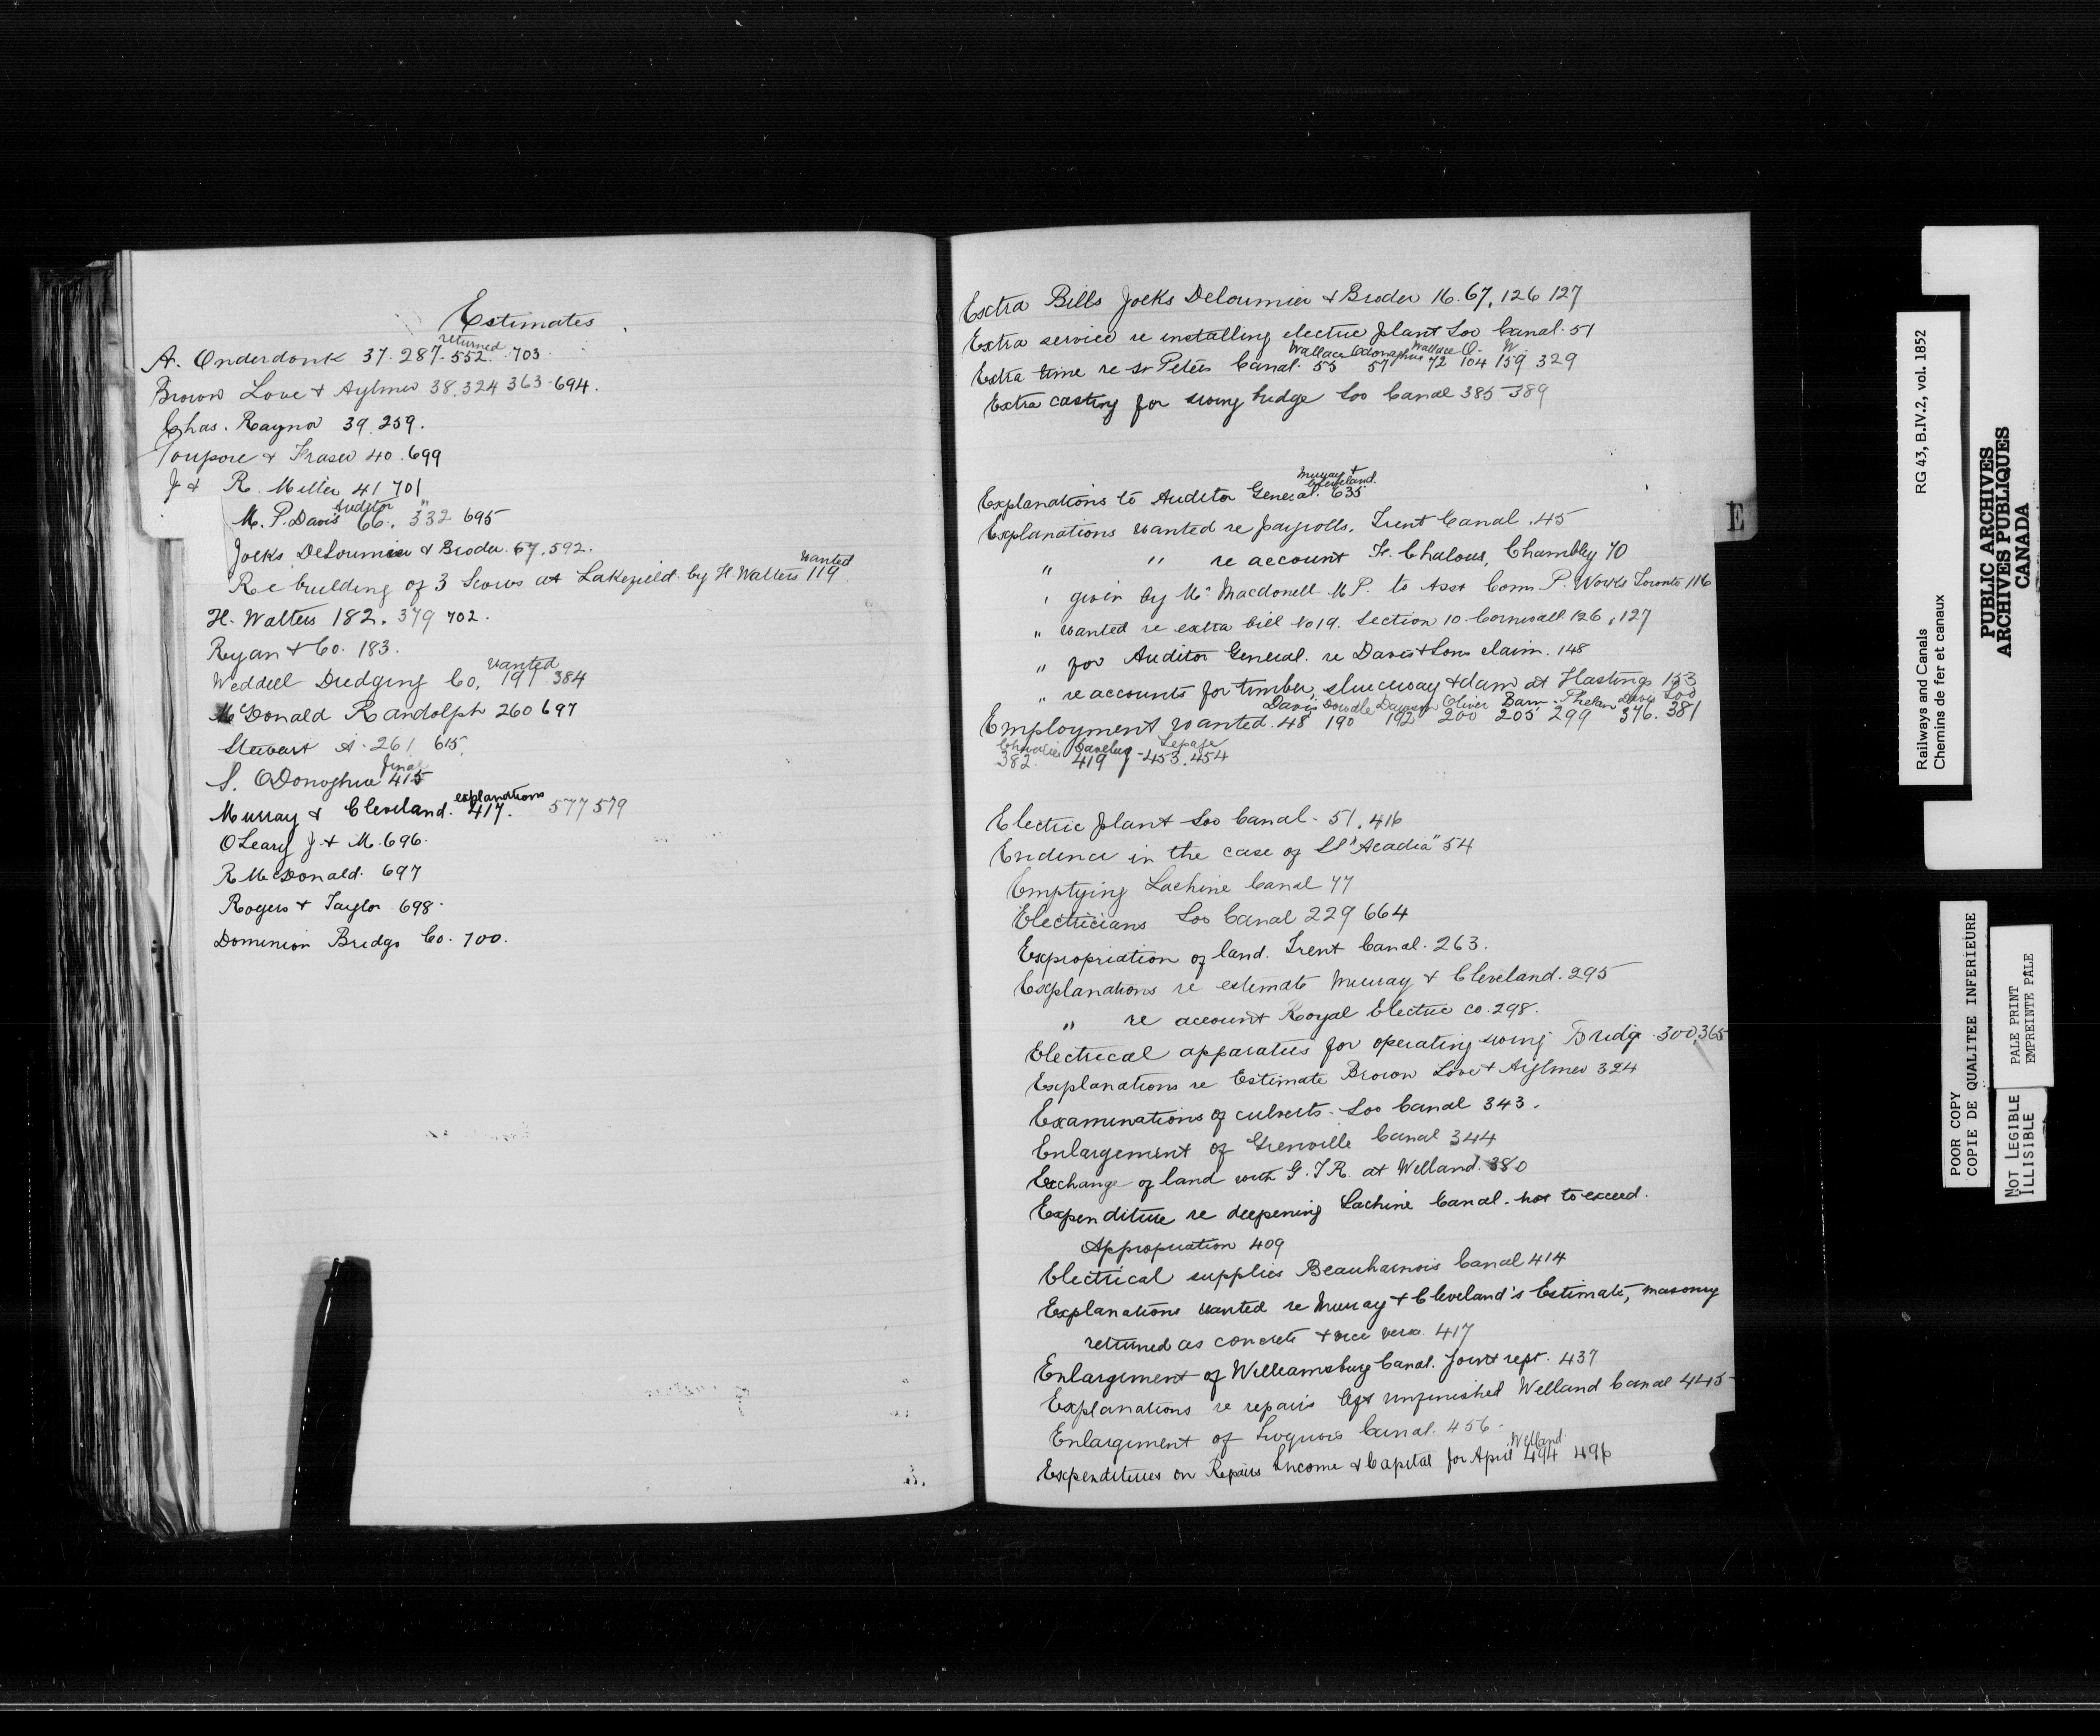 Estimates
returned
A. Onderdonk 37. 287. 552. 703.
Brown Love & Aylmer 38. 324 363. 694.
Chas. Raynor 39. 259.
Poupore & Fraser 40. 699
J & R. Miller 41 701
Auditor "
M. P. Davis 66. 332 695
Jocks Delourmier & Broder. 67. 592.
wanted
Re building of 3 Scows at Lakefield by H. Walters 119.
H. Walters 182. 379 702.
Ryan & Co. 183.
wanted
Weddell Dredging Co. 191 384
McDonald Randolph 260 697
Stewart A. 261 615.
Final
S. ODonoghue 415
explanations
Murray & Cleveland. 417. 577 579
OLeary J. & M. 696.
R McDonald. 697
Rogers & Taylor 698.
Dominion Bridge Co. 700.
Extra Bills Jocks Delourmier & Broder 16. 67. 126 127
Extra service re installing electric plant Soo Canal. 51
Wallace Odonaghue Wallace O. W.
Extra time re St Peters Canal. 55 57 72 104 159 329
Extra casting for swing bridge Soo Canal 385 389
Murray & Cleveland.
Explanations to Auditor General. 635
Explanations wanted re payrolls. Trent Canal. 45
" " re account F. Chalous, Chambly 70
" given by Mr Macdonell M.P. to Asst Comr P. Works Toronto 116
" wanted re extra bill No 19. Section 10 Cornwall 126, 127
" for Auditor General. re Davis & Sons claim. 148
" re accounts for timber, sluiceway & dam at Hastings 153
Davis Dowdle Dawson Oliver Barm. Phelan Davis Soo
Employment wanted. 48 190 192 200 205 299 376. 381
Chevalier Lepage
382. 419 453. 454
Electric plant Soo Canal. 51. 416
Evidence in the case of SS "Acadia" 54
Emptying Lachine Canal 77
Electricians Soo Canal 229 664
Expropriation of land. Trent Canal. 263.
Explanations re estimate Murray & Cleveland. 295
" re account Royal Electric Co. 298.
Electrical apparatus for operating swing Bridge 300, 365
Explanations re Estimate Brown Love & Aylmer 324
Examinations of culverts. Soo Canal 343.
Enlargement of Grenville Canal 344
Exchange of land with G.T.R. at Welland. 380
Expenditure re deepening Lachine Canal. not to exceed.
Appropriation 409
Electrical supplies Beauharnois Canal 414
Explanations wanted re Murray & Cleveland's Estimate, masonry
returned as concrete & vice versa. 417
Enlargement of Williamsburg Canal. Joint rept. 437
Explanations re repairs left unfinished Welland Canal 445
Enlargement of Iroquois Canal. 456.
Welland
Expenditures on Repairs Income & Capital for April 494 496
E
Railways and Canals RG 43, B.IV.2, vol. 1852
Chemins de fer et canaux
PUBLIC ARCHIVES
ARCHIVES PUBLIQUES
CANADA
POOR COPY
COPIE DE QUALITEE INFERIEURE
PALE PRINT
EMPREINTE PALE
NOT LEGIBLE
ILLISIBLE